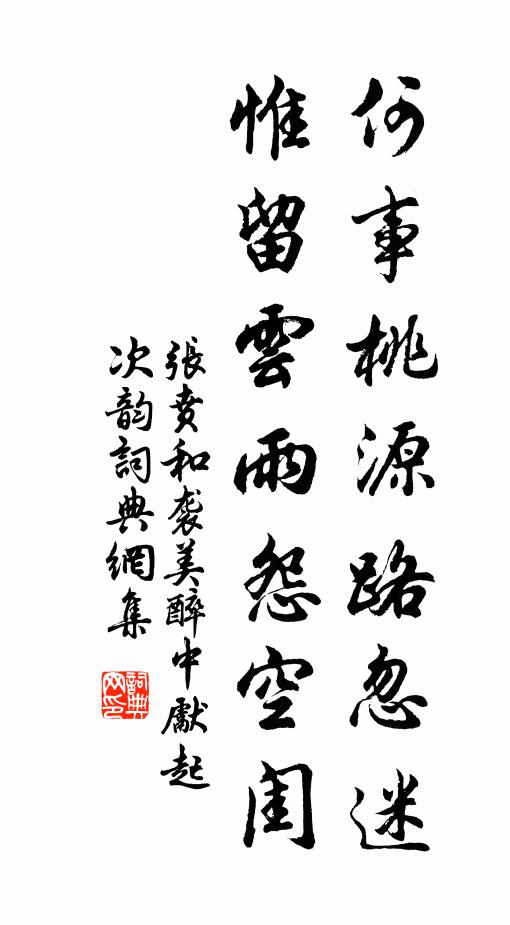 何事桃源路忽迷
惟留雲雨怨空閨
張賁和袭美醉中獻起
次韵詞典網集
詞典网印